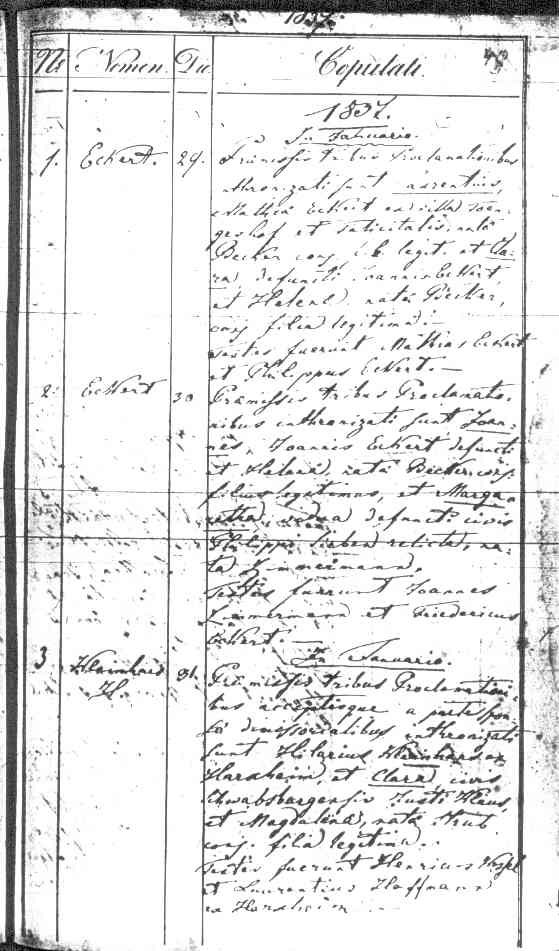 1837.
Nr. Nomen. Die Copulati.
1837.
In Januario.
1. Eckert. 29. Praemissis tribus Proclamationibus
inthronizati sunt Laurentius,
Mathiä Eckert ex villa
et Felicitatis, natä
Becker conj. legit. et Cla-
ra defuncti Joannis Eckert,
et Helenä natä Becker,
conj. filia legitima.
Testes fuerunt Mathias Eckert
et Philippus Eckert. —
2. Eckert 30 Praemissis tribus Proclamatio-
nibus inthronizati sunt Joan-
nes, Joannis Eckert defuncti
et Helenä, natä Becker conj.
filius legitimus, et Marga-
retha, vidua defuncti civis
Philippi relicta, na-
ta Zimmermann.
Testes fuerunt Joannes
Zimmermann et Friedericus
Eckert —
In Januario.
3 Kleinhard 31. Praemissis tribus Proclamationi-
H.
bus acceptisque a parte spon-
si dimissorialibus inthronizati
sunt Hilarius Kleinhard ex
Harxheim, et Clara civis
Schwabsburgensis Justi
et Magdalenä, natä
conj. filia legitima.
Testes fuerunt Henricus
et Laurentius Hoffmann
ex Harxheim